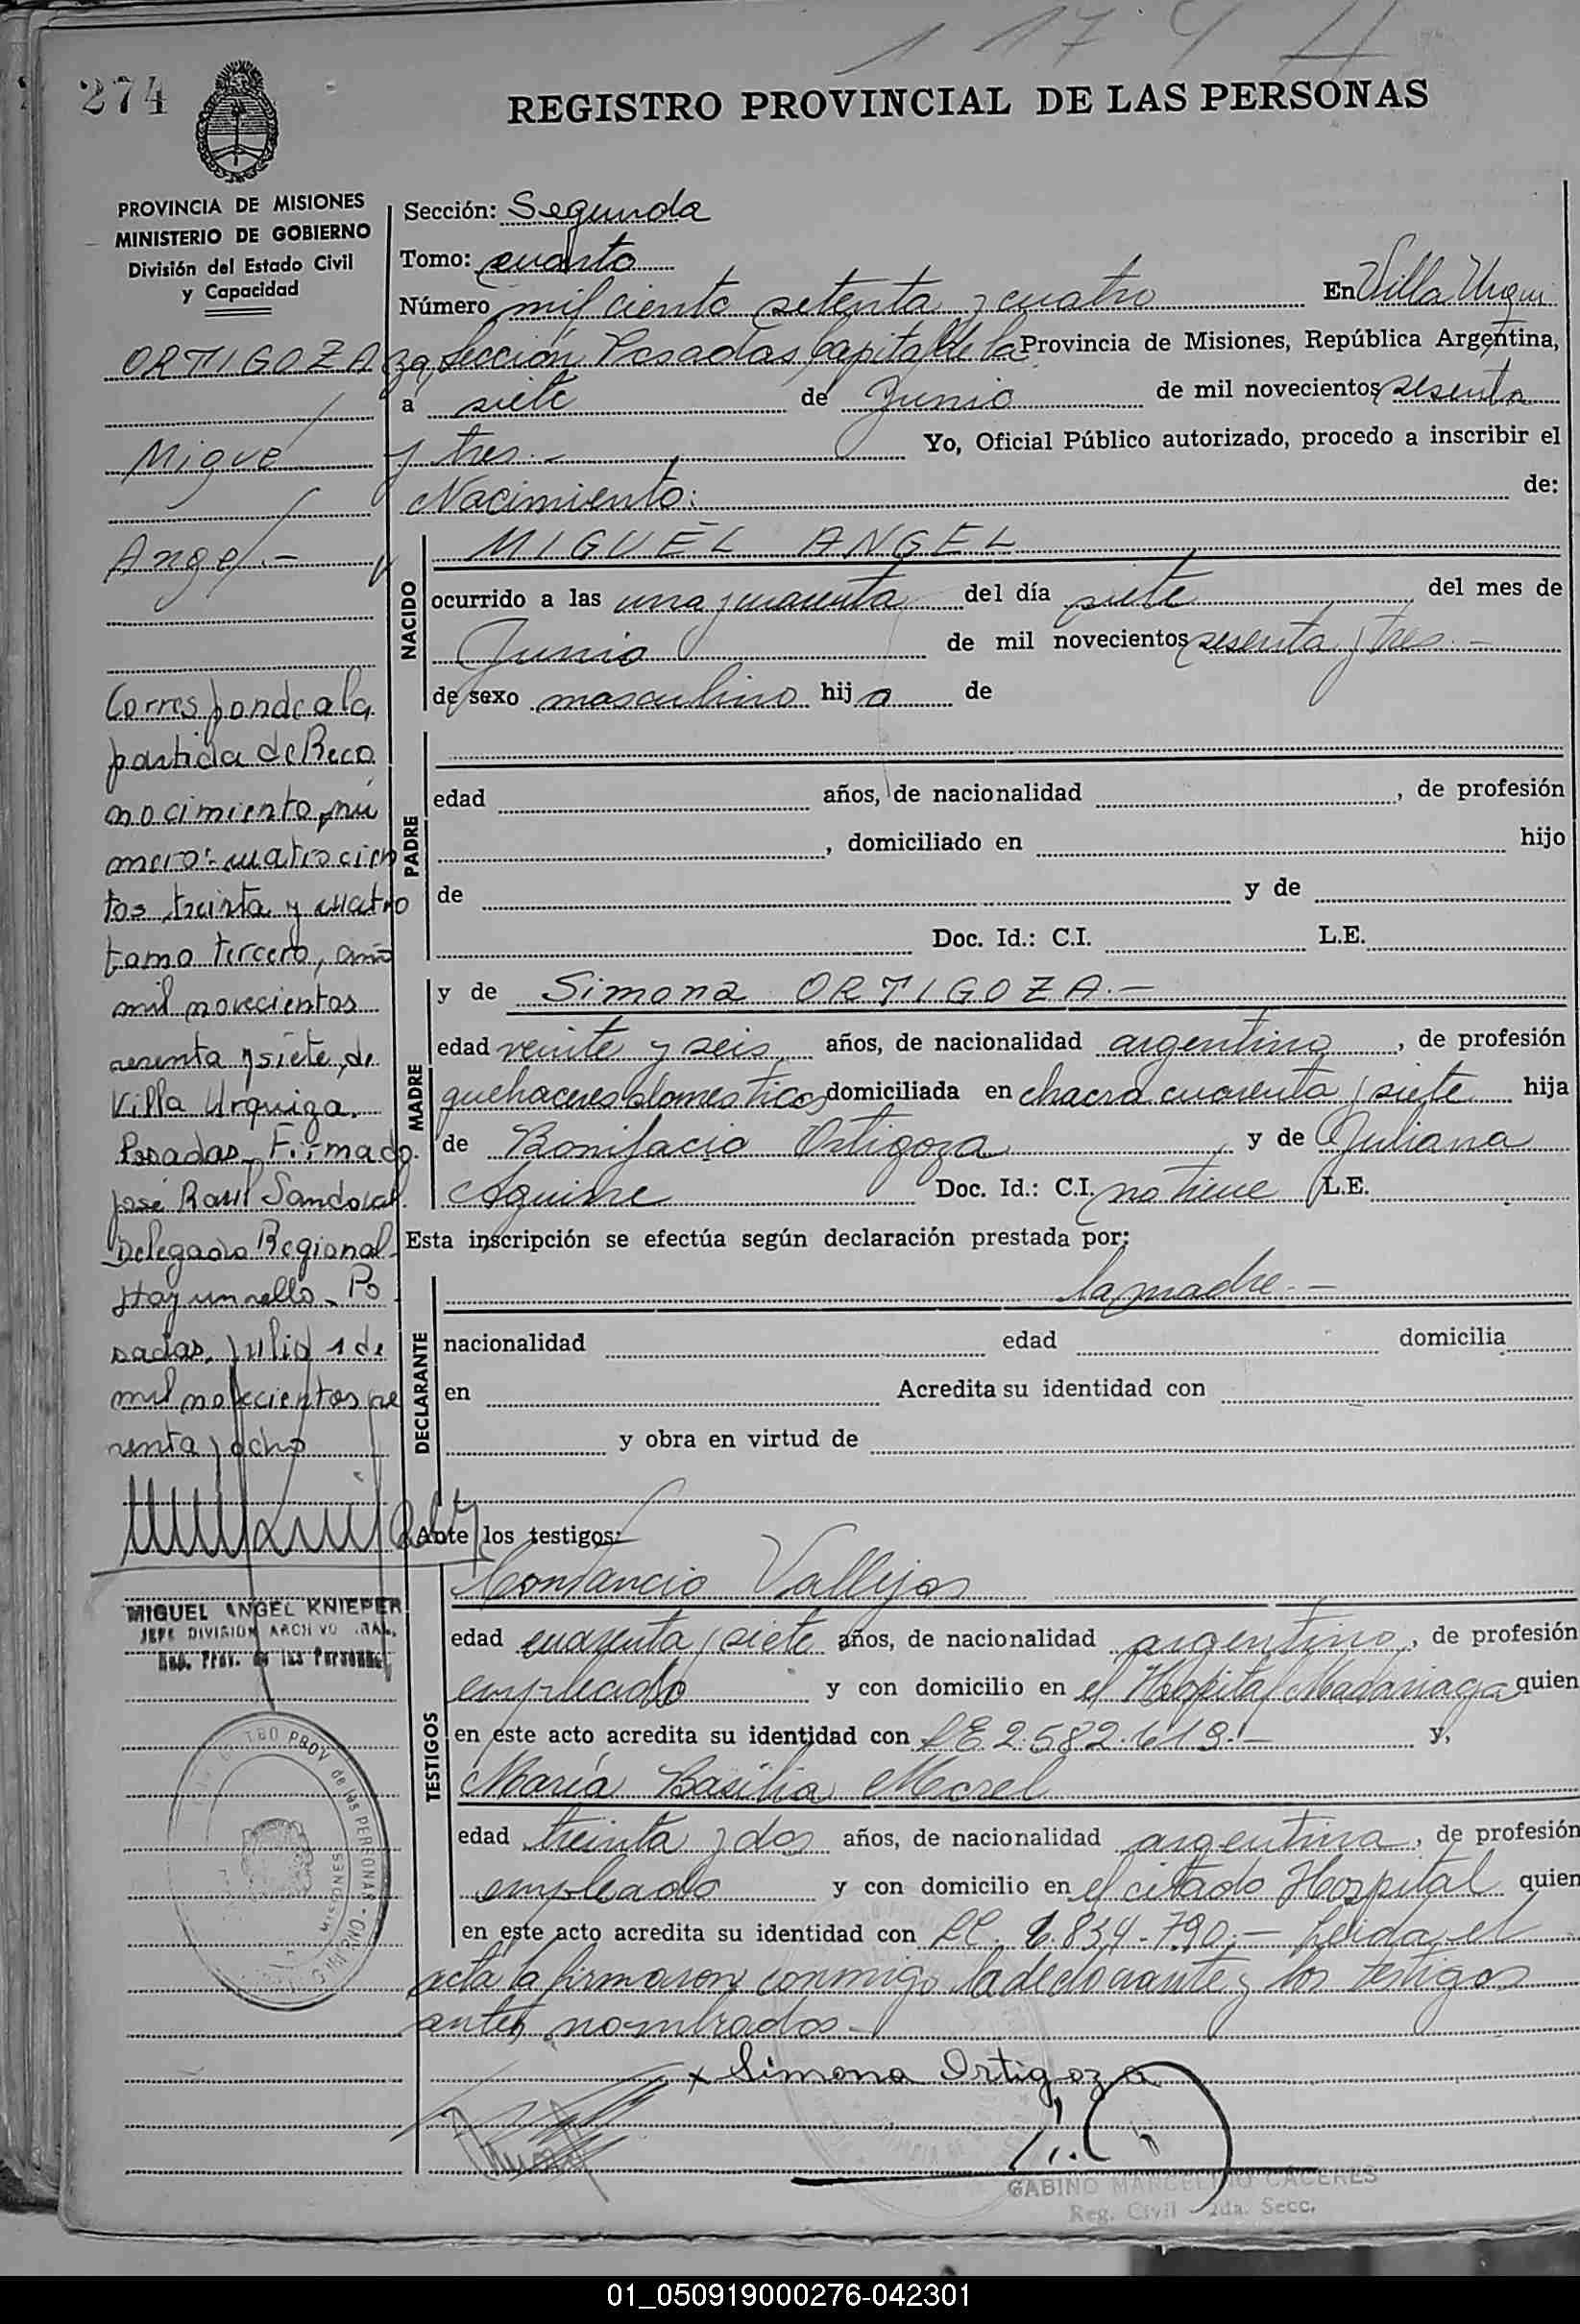 1174
274
REGISTRO PROVINCIAL DE LAS PERSONAS
PROVINCIA DE MISIONES
MINISTERIO DE GOBIERNO
División del Estado Civil
y Capacidad
ORTIGOZA
Miguel
Angel.-
Corresponde a la
partida de Reco
nocimiento, nú
mero: cuatrocien
tos treinta y cuatro
tomo tercero, año
mil novecientos
sesenta y siete, de
Villa Urquiza.
Posadas. Firmado.
José Raul Sandoval.
Delegado Regional.
Hay un sello. Po
sadas, julio 1 de
mil novecientos se
senta y ocho
MIGUEL ANGEL KNIEPER
JEFE DIVISION ARCHIVO GRAL.
Reg. Prov. de las Personas
Sección: Segunda
Tomo: cuarto
Número mil ciento setenta y cuatro En Villa Urqui
za, Sección Posadas Capital de la Provincia de Misiones, República Argentina,
a siete de Junio de mil novecientos sesenta
y tres.- Yo, Oficial Público autorizado, procedo a inscribir el
Nacimiento: de:
NACIDO
MIGUEL ANGEL
ocurrido a las una y cuarenta del día siete del mes de
Junio de mil novecientos sesenta y tres.-
de sexo masculino hijo de
PADRE
edad años, de nacionalidad , de profesión
, domiciliado en hijo
de y de
Doc. Id.: C.I. L.E.
MADRE
y de Simona ORTIGOZA.-
edad veinte y seis años, de nacionalidad argentina, de profesión
quehaceres domesticos domiciliada en chacra cuarenta y siete hija
de Bonifacio Ortigoza y de Juliana
Aguirre Doc. Id.: C.I. no tiene L.E.
Esta inscripción se efectúa según declaración prestada por:
DECLARANTE
la madre.-
nacionalidad edad domicilia
en Acredita su identidad con
y obra en virtud de
Ante los testigos:
TESTIGOS
Constancio Vallejos
edad cuarenta y siete años, de nacionalidad argentino, de profesión
empleado y con domicilio en el Hospital Madariaga quien
en este acto acredita su identidad con LE 2.582.619.- y,
María Basilia Morel
edad treinta y dos años, de nacionalidad argentina, de profesión
empleada y con domicilio en el citado Hospital quien
en este acto acredita su identidad con LC. 6.834.790.- Leida el
acta la firmaron conmigo la declarante y los testigos
antes nombrados.-
x Simona Ortigoza
GABINO MARCELINO CACERES
Reg. Civil 2da. Secc.
01_050919000276-042301